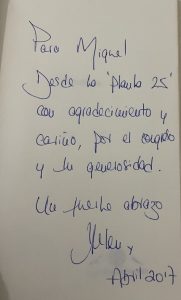 Para Miguel
Desde la "planta 25"
con agradecimiento y
cariño, por el
y la generosidad.
Un fuerte abrazo
Abril 2017